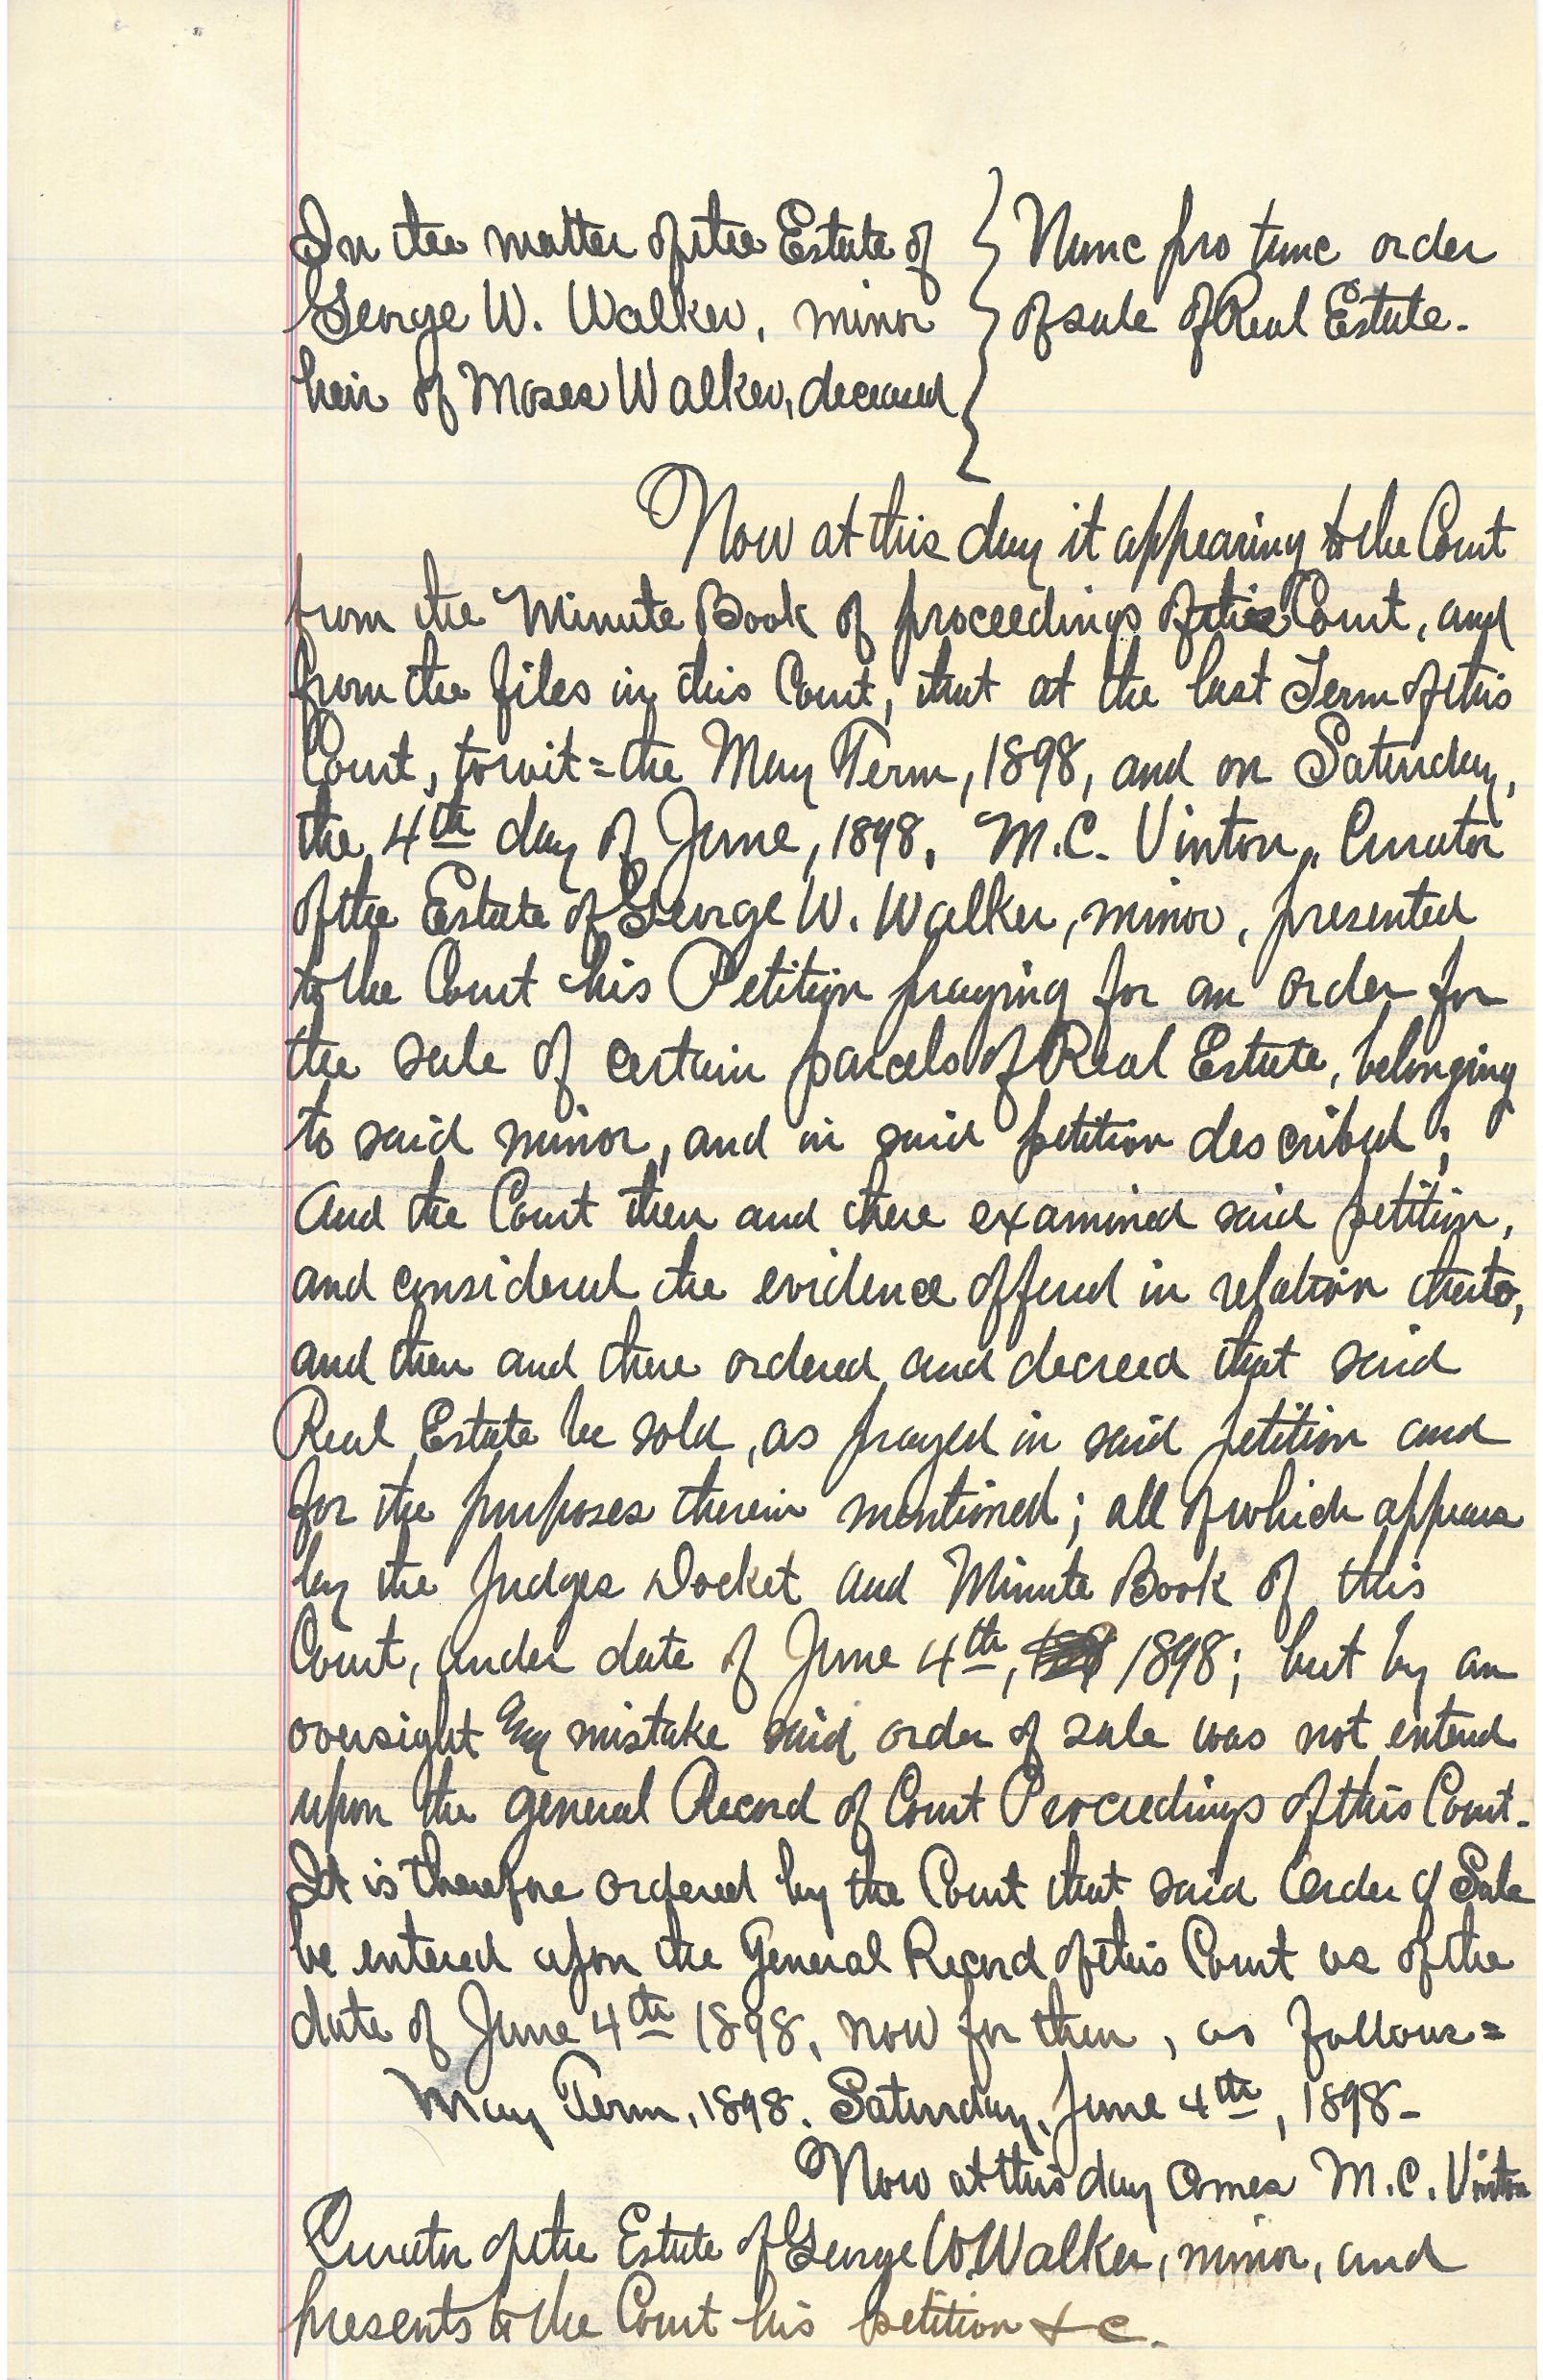 In the matter of the Estate of } Nunc pro tunc order
George W. Walker, minor } of sale of Real Estate.
heir of Moses Walker, deceased }
Now at this day it appearing to the Court
from the Minute Book of proceedings of this Court, and
from the files in this Court, that at the last Term of this
Court, towit = the May Term, 1898, and on Saturday,
the 4th day of June, 1898, M.C. Vinton, Curator
of the Estate of George W. Walker, minor, presented
to the Court his Petition praying for an order for
the sale of certain parcels of Real Estate, belonging
to said minor, and in said petition described;
And the Court then and there examined said petition,
and considered the evidence offered in relation thereto,
and then and there ordered and decreed that said
Real Estate be sold, as prayed in said petition and
for the purposes therein mentioned; all of which appears
by the Judges Docket and Minute Book of this
Court, under date of June 4th, 1898; but by an
oversight mistake said order of sale was not entered
upon the general Record of Court Proceedings of this Court.
It is therefore ordered by the Court that said Order of Sale
be entered upon the General Record of this Court as of the
date of June 4th 1898, now for then, as follows =
May Term, 1898. Saturday, June 4th, 1898-
Now at this day comes M.C. Vinton
Curator of the Estate of George W. Walker, minor, and
presents to the Court his petition &c.